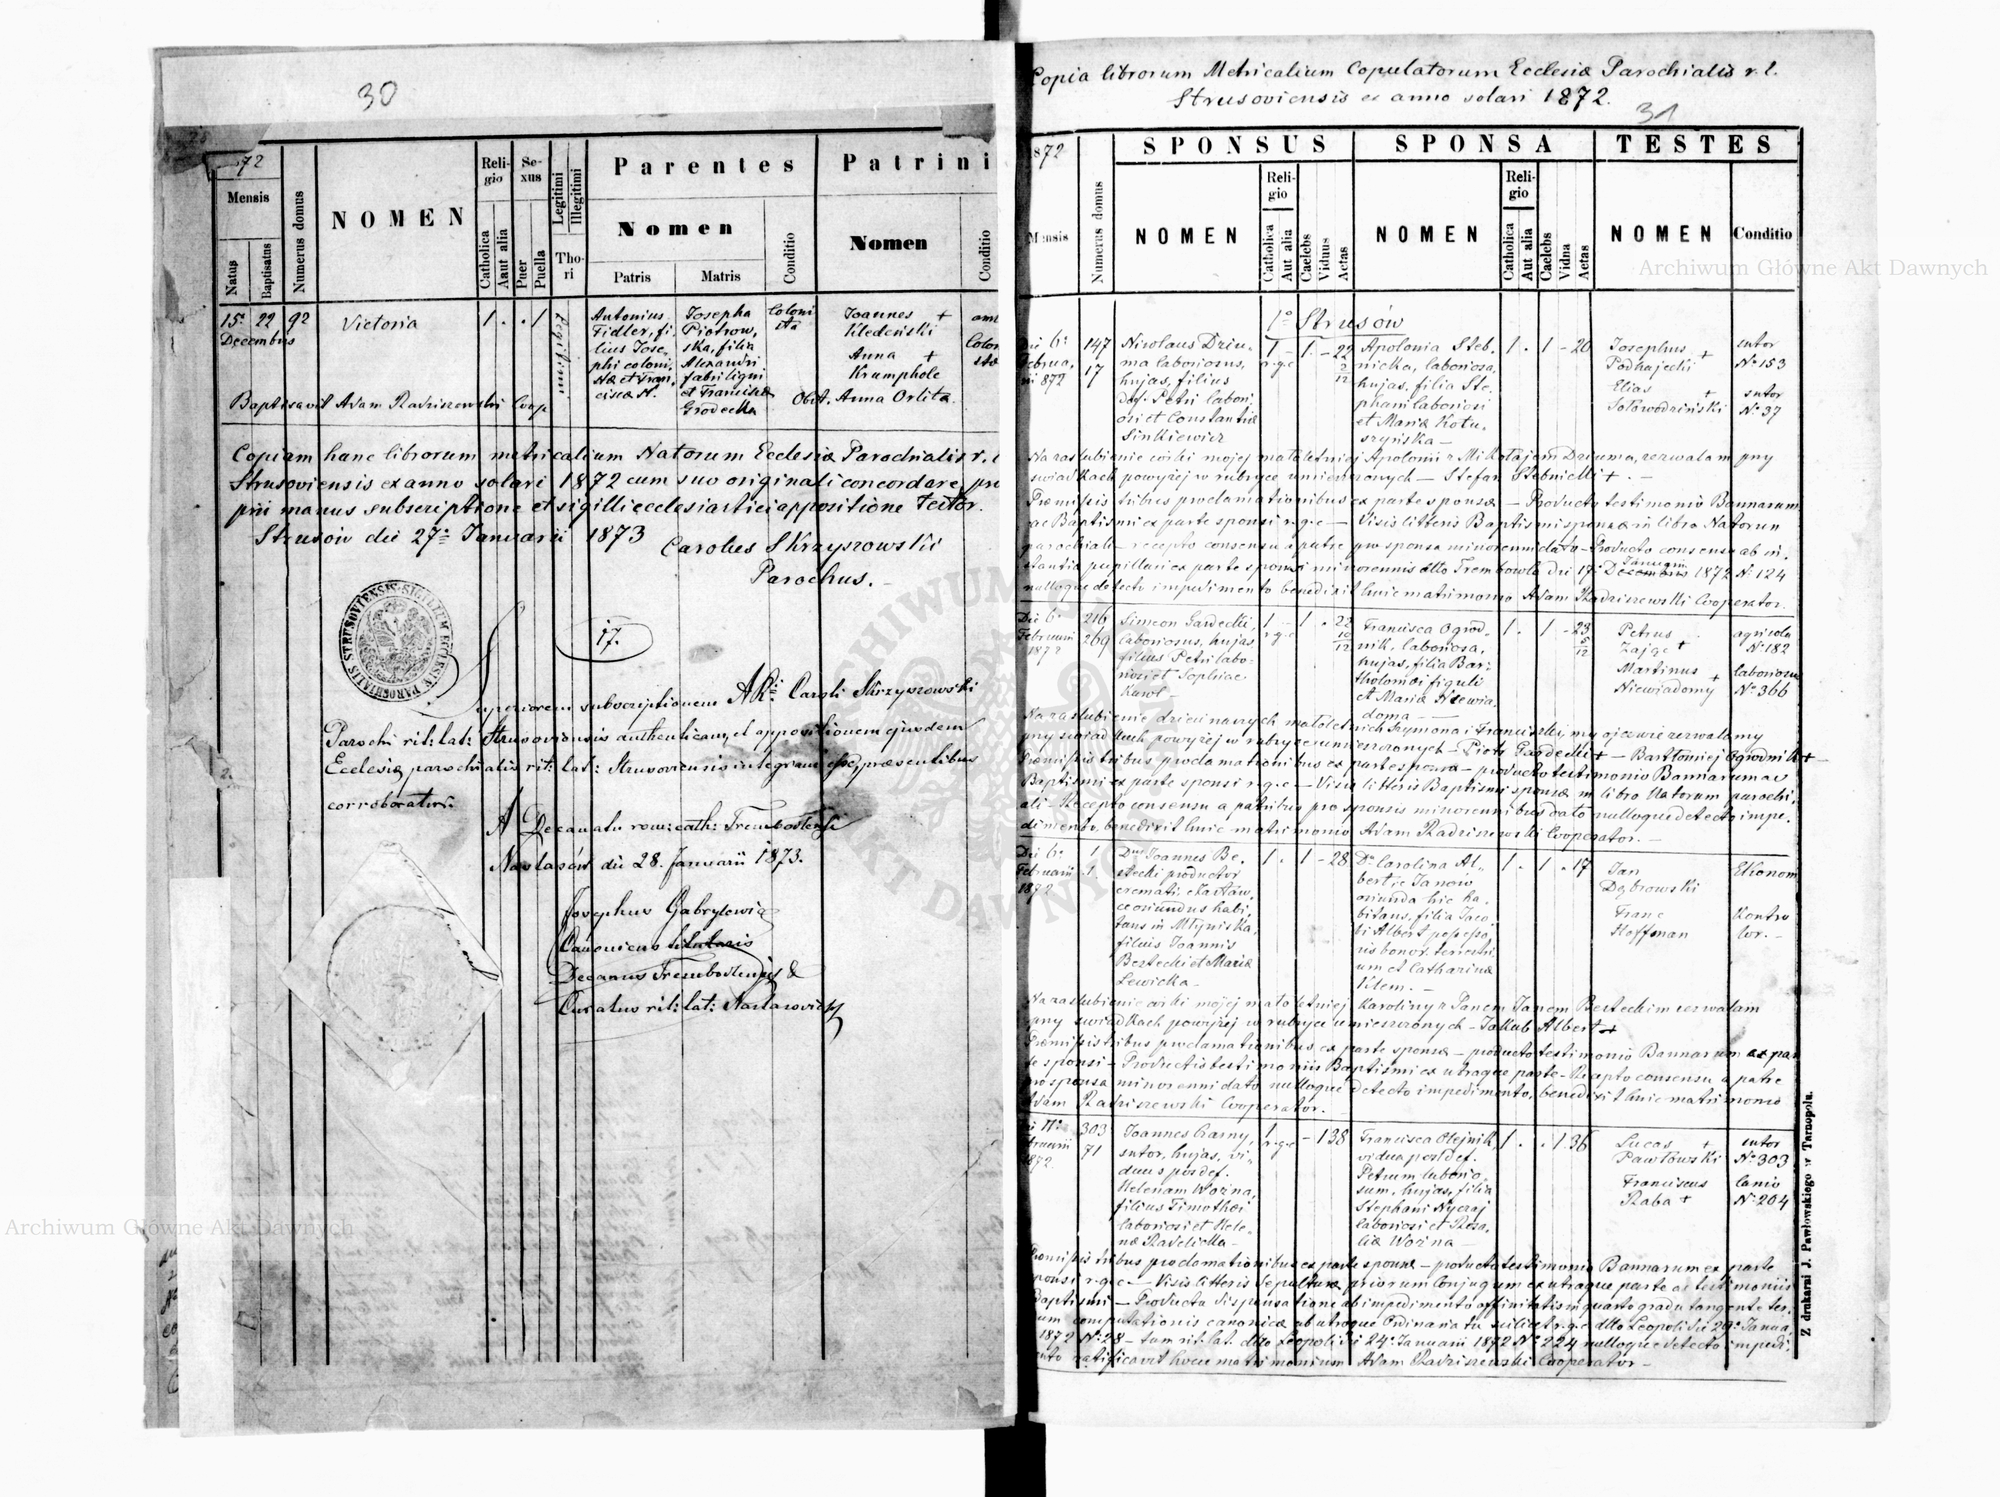 30
72
Mensis
Natus
Baptisatus
Numerus domus
NOMEN
Religio
Catholica
Aut alia
Sexus
Puer
Puella
Legitimi
Illegitimi
Thori
Parentes
Nomen
Patris
Matris
Conditio
Patrini
Nomen
Conditio
15. 22 92 Victoria 1 . . 1
Decembris
Legitimi
Antonius
Fidler, fi
lius Jose,
phi coloni,
stæ et Fran,
ciscæ N.
Josepha
Piotrow,
ska, filia
Alexandri
fabri ligni
et Franciscæ
Grodecka
Coloni
sta
Joannes +
Kledeński
Anna +
Krumphole
Colon
stæ
Baptisavit Adam Radziszewski Coop
Obst. Anna Orlita.
Copiam hanc librorum metricalium Natorum Ecclesiæ Parochialis r. l
Strusoviensis ex anno solari 1872 cum suo originali concordare, pro
prii manus subscriptione et sigilli ecclesiastici appositione Testor.
Strusów die 27 Januarii 1873
Carolus Skrzyszowski
Parochus. -
SIGILLUM ECCLESIÆ PAROCHIALIS STRUSOVIENSIS
17.
Superiorem subscriptionem ARi Caroli Skrzyszowski
Parochi rit: lat: Strusoviensis authenticam, et appositionem ejusdem
Ecclesiæ parochialis rit: lat: Strusoviensis integram esse, præsentibus
corroboratur.
A Decanatu rom: cath: Trembovlensi
Nastasów die 28. Januarii 1873.
Josephus Gabrylewicz
Canonicus titularis
Decanus Trembovlensis &
Curatus rit: lat: Nastasoviens
Copia librorum Metricalium Copulatorum Ecclesiæ Parochialis r. l.
Strusoviensis ex anno solari 1872.
31
1872
Mensis
Numerus domus
SPONSUS
NOMEN
Religio
Catholica
Aut alia
Caelebs
Viduus
Aetas
SPONSA
NOMEN
Religio
Catholica
Aut alia
Caelebs
Vidua
Aetas
TESTES
NOMEN
Conditio
1º Strusów
Die 6
Februa,
rii 872
147
17
Nicolaus Dziu,
ma laboriosus,
hujas, filius
def. Petri labori
osi et Constantiæ
Sinkiewicz
1 - 1 - 22
r.g.c
2
12
Apolonia Steb,
nicka, laboriosa,
hujas, filia Ste,
phani laboriosi
et Mariæ Kotu,
szyńska -
1 . 1 - 20
Josephus +
Podhajecki
Elias +
Sołowodziński
sutor
Nº 153
sutor
Nº 37
Na zaslubienie córki mojej małoletniej Apolonii z Mikołajem Dziuma, zezwalam przy
swiadkach powyżej w rubryce umieszczonych - Stefan Stebnicki + . -
Præmissis tribus proclamationibus ex parte sponsæ - Producto testimonio Bannarum
ac Baptismi ex parte sponsi r.g.c - Visis litteris Baptismi sponsæ in libro Natorum
parochiali - recepto consensu a patre pro sponsa minorenni dato - Producto consensu ab in,
stantia pupillari ex parte sponsi minorennis ddto Trembowla die 17 Decembris Januarii 1872 Nº 124
nulloque detecto impedimento benedixit huic matrimonio Adam Radziszewski Cooperator.
Die 6
Februarii
1872
216
269
Simeon Gardecki,
laboriosus, hujas,
filius Petri labo,
riosi et Sophiæ
Kawł -
1 - 1 . 22
r.g.c
10
12
Francisca Ogrod,
nik, laboriosa,
hujas, filia Bar,
tholomæi figuli
et Mariæ Niewia,
doma -
1 . 1 - 23
5
12
Petrus
Zając +
Martinus
Niewiadomy +
agricola
Nº 182
laboriosus
Nº 366
Na zaslubienie dzieci naszych małoletnich Szymona i Franciszki, my ojcowie zezwalamy
przy swiadkach powyżej w rubryce umieszczonych - Piotr Gardecki + - Bartłomiej Ogrodnik + -
Præmissis tribus proclamationibus ex parte sponsæ - producto testimonio Bannarum ac
Baptismi ex parte sponsi r.g.c - Visis litteris Baptismi sponsæ in libro Natorum parochi,
ali - Recepto consensu a patribus pro sponsis minorennibus dato nulloque detecto impe,
dimento, benedixit huic matrimonio Adam Radziszewski Cooperator. -
Die 6
Februarii
1872
1
1.
Dnus Joannes Be,
stecki productor
cremati,
ce oriundus habi,
tans in Młyniska,
filius Joannis
Bestecki et Mariæ
Lewicka -
1 . 1 - 28
Da Carolina Al,
bert, e Janów
oriunda hic ha,
bitans, filia Jaco,
bi Albert possesso,
ris bonor. terrestri,
um et Catharinæ
Klem. -
1 . 1 . 17
Jan
Dąbrowski
Franc
Hoffman
Ekonom
Kontro
lor. -
Na zaslubienie córki mojej małoletniej Karoliny z Panem Janem Besteckim zezwalam
przy swiadkach powyżej w rubryce umieszczonych - Jakób Albert +
Præmissis tribus proclamationibus ex parte sponsæ - producto testimonio Bannarum ex par
te sponsi - Productis testimoniis Baptismi ex utraque parte - Recepto consensu a patre
pro sponsa minorenni dato nulloque detecto impedimento, benedixit huic matrimonio
Adam Radziszewski Cooperator. -
Die 11
Februarii
1872
303
71
Joannes Czarny,
sutor, hujas, vi,
duus post def.
Helenam Woźna,
filius Timothei
laboriosi et Hele,
næ Radelicka -
1 - - 1 38
r.g.c
Francisca Olejnik,
vidua post def.
Petrum laborio,
sum, hujas, filia
Stephani Nyczaj
laboriosi et Rosa,
liæ Woźna -
1 . . 1 36
Lucas +
Pawłowski
Franciscus
Raba +
sutor
Nº 303
lanio
Nº 204
Præmissis tribus proclamationibus ex parte sponsæ - producto testimonio Bannarum ex parte
sponsi r.g.c - Visis litteris Sepulturæ priorum Conjugum ex utraque parte ac testimoniis
Baptismi - Producta dispensatione ab impedimento affinitatis in quarto gradu tangente ter,
tium computationis canonicæ ab utroque Ordinariatu scilicet r.g.c ddto Leopoli die 20 Janua
1872 Nº 28 - tum rit. lat. ddto Leopoli die 24 Januarii 1872 Nº 224 nulloque detecto impedi,
mento ratificavit hocce matrimonium Adam Radziszewski Cooperator -
Z drukarni J. Pawłowskiego w Tarnopolu.
Archiwum Główne Akt Dawnych
Archiwum Główne Akt Dawnych
ARCHIWUM GŁÓWNE AKT DAWNYCH